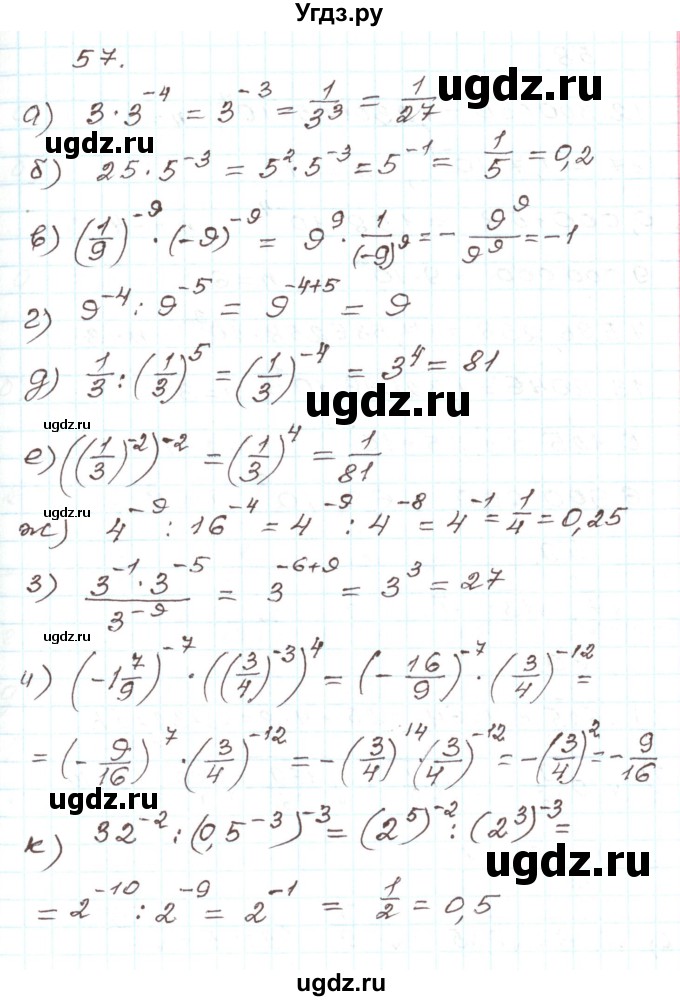 Угдз.ру
57.
а) 3·3^-4 = 3^-3 = 1/3^3 = 1/27
ugdz.ru
ugdz.ru
б) 25·5^-3 = 5^2·5^-3 = 5^-1 = 1/5 = 0,2
в) (1/9)^-9 · (-9)^-9 = 9^9 · 1/(-9)^9 = - 9^9/9^9 = -1
г) 9^-4 : 9^-5 = 9^-4+5 = 9
д) 1/3 : (1/3)^5 = (1/3)^-4 = 3^4 = 81
ugdz.ru
ugdz.ru
е) ((1/3)^-2)^-2 = (1/3)^4 = 1/81
ugdz.ru
ж) 4^-9 : 16^-4 = 4^-9 : 4^-8 = 4^-1 = 1/4 = 0,25
з) 3^-1·3^-5/3^-9 = 3^-6+9 = 3^3 = 27
ugdz.ru
и) (-1 7/9)^-7 · ((3/4)^-3)^4 = (- 16/9)^-7 · (3/4)^-12 =
= (- 9/16)^7 · (3/4)^-12 = -(3/4)^14 · (3/4)^-12 = -(3/4)^2 = - 9/16
ugdz.ru
к) 32^-2 : (0,5^-3)^-3 = (2^5)^-2 : (2^3)^-3 =
ugdz.ru
= 2^-10 : 2^-9 = 2^-1 = 1/2 = 0,5
ugdz.ru